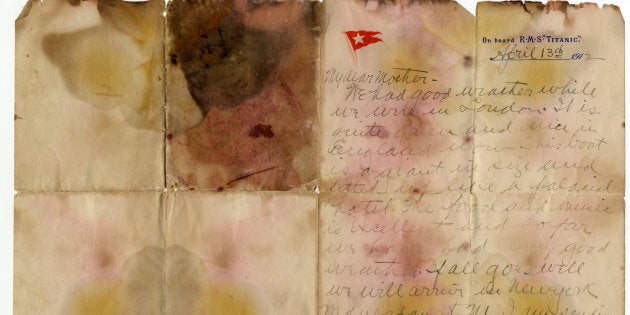 On board R.M.S. "TITANIC."
April 13th 1912
My dear Mother -
We had good weather while
we were in London. It is
quite green and nice in
England now. This boat
is a giant in size and
fitted up like a palacial
hotel. The food and music
is excellent and so far
we have had very good
weather. If all goes well
we will arrive in New York
A.M. I am